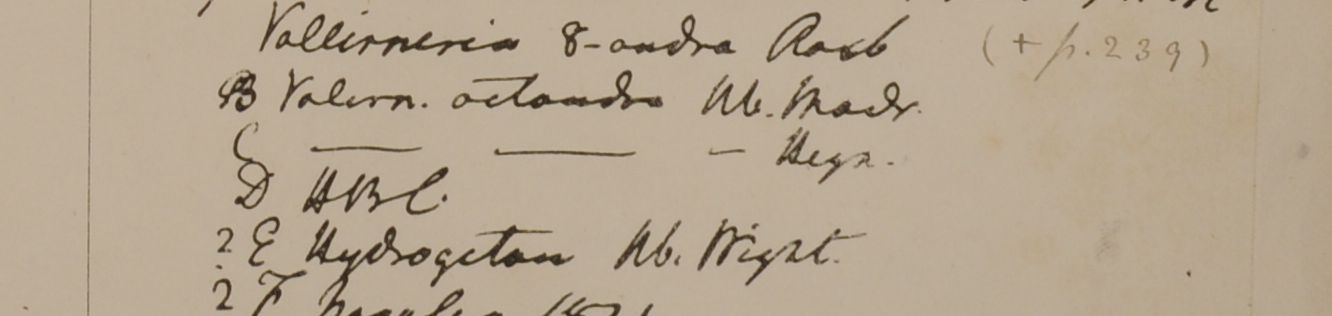 Vallisneria 8-andra Roxb (+ p. 239)
B Valisn. octandra Hb. Madr.
C — — — Heyn.
D HBC.
? E Hydrogeton Hb. Wight.
? F